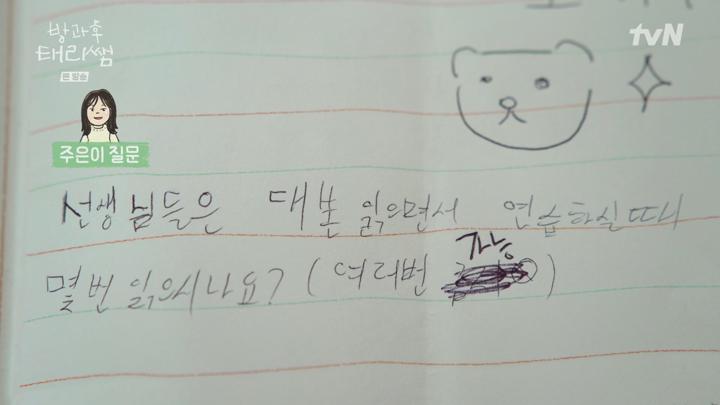 방과후
태리쌤
본 방송
tvN
주은이 질문
선생님들은 대본 읽으면서 연습하실때
몇번 읽으시나요? (여러번 가능)